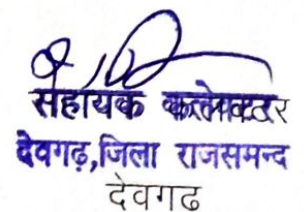 सहायक कलेक्टर
देवगढ़,जिला राजसमन्द
देवगढ